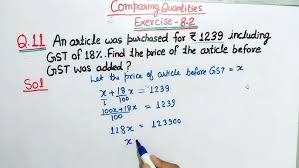 Comparing Quantities
Exercise - 8.2
Q.11 An article was purchased for ₹ 1239 including
GST of 18%. Find the price of the article before
GST was added?
Sol Let the price of article before GST = x
x/1 + 18x/100 = 1239
100x+18x/100 = 1239
118x = 123900
x